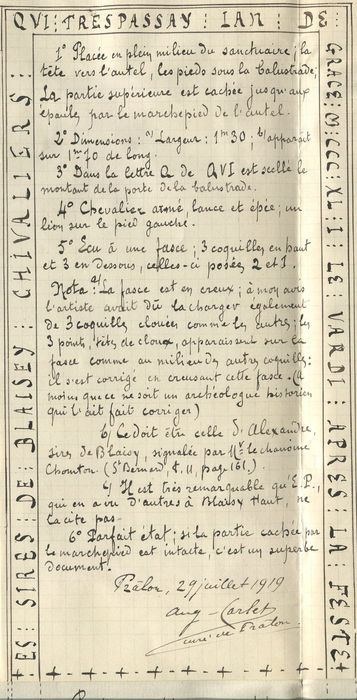 ES : SIRES : DE : BLAISEY : CHIVALIERS :
QVI : TRESPASSAY : LAN : DE :
GRACE : M : CCC : XL : I : LE : VARDI : APRES : LA : FESTE
1° Placée en plein milieu du sanctuaire; la
tête vers l'autel, les pieds sous la balustrade;
La partie supérieure est cachée jusqu'aux
épaules par le marchepied de l'autel.
2° Dimensions: a/ Largeur: 1m30, b/ apparait
sur 1m70 de long.
3° Dans la lettre Q de QVI est scellé le
montant de la porte de la balustrade.
4° Chevalier armé, lance et épée; un
lion sur le pied gauche.
5° Ecu à une fasce; 3 coquilles en haut
et 3 en dessous, celles-ci posées 2 et 1.
Nota: a/ La fasce est en creux; à mon avis
l'artiste avait dû la charger également
de 3 coquilles clouées comme les autres; les
3 points, têts de clous, apparaissent sur la
fasce comme au milieu des autres coquilles:
il s'est corrigé en creusant cette fasce. (à
moins que ce ne soit un archéologue historien
qui l'ait fait corriger)
b/ Ce doit être celle d'Alexandre,
sires de Blaisy, signalée par Mr. le chanoine
Chomton (St Bernard, t. II, page 161.)
c/ Il est très remarquable qu'E.P.,
qui en a vu d'autres à Blaisy Haut, ne
la cite pas-
6° Parfait état; si la partie cachée par
le marchepied est intacte, c'est un superbe
document.
Pralon, 29 juillet 1919
Aug-
curé de Pralon